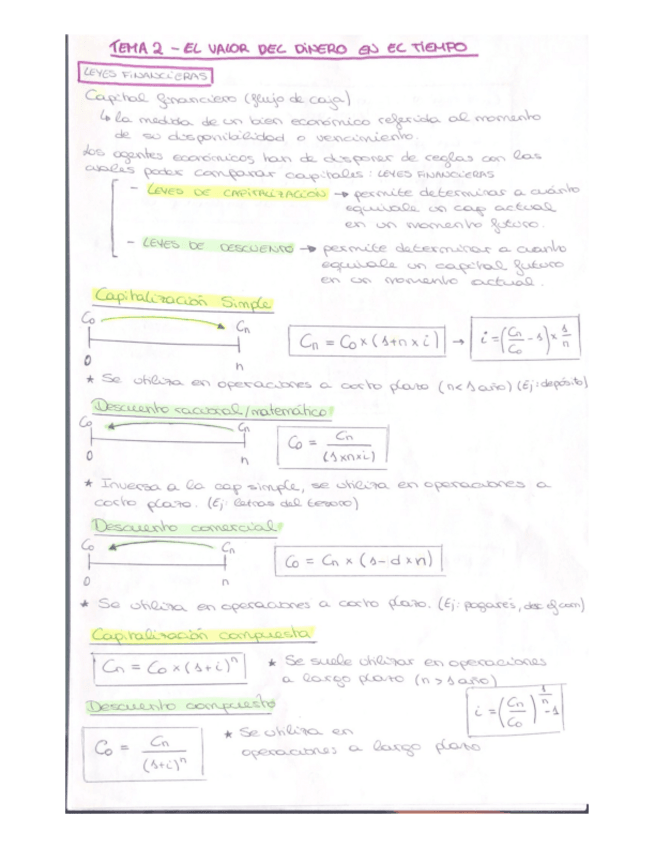 TEMA 2 - EL VALOR DEL DINERO EN EL TIEMPO
LEYES FINANCIERAS
Capital financiero (flujo de caja)
↳ la medida de un bien económico referida al momento
de su disponibilidad o vencimiento.
Los agentes económicos han de disponer de reglas con las
cuales poder comparar capitales: LEYES FINANCIERAS
- LEYES DE CAPITALIZACIÓN → permite determinar a cuánto
equivale un cap actual
en un momento futuro.
- LEYES DE DESCUENTO → permite determinar a cuanto
equivale un capital futuro
en un momento actual.
Capitalización Simple
C0 Cn
0 n
Cn = C0 × (1+n × i) → i = (Cn/C0 - 1) × 1/n
* Se utiliza en operaciones a corto plazo (n < 1 año) (Ej: depósito)
Descuento racional/matemático
C0 Cn
0 n
C0 = Cn/(1×n×i)
* Inversa a la cap simple, se utiliza en operaciones a
corto plazo. (Ej: letras del tesoro)
Descuento comercial
C0 Cn
0 n
C0 = Cn × (1 - d × n)
* Se utiliza en operaciones a corto plazo. (Ej: pagarés, dec of com)
Capitalización compuesta
Cn = C0 × (1+i)^n
* Se suele utilizar en operaciones
a largo plazo (n > 1 año)
Descuento compuesto
i = (Cn/C0)^(1/n) - 1
C0 = Cn/(1+i)^n
* Se utiliza en
operaciones a largo plazo